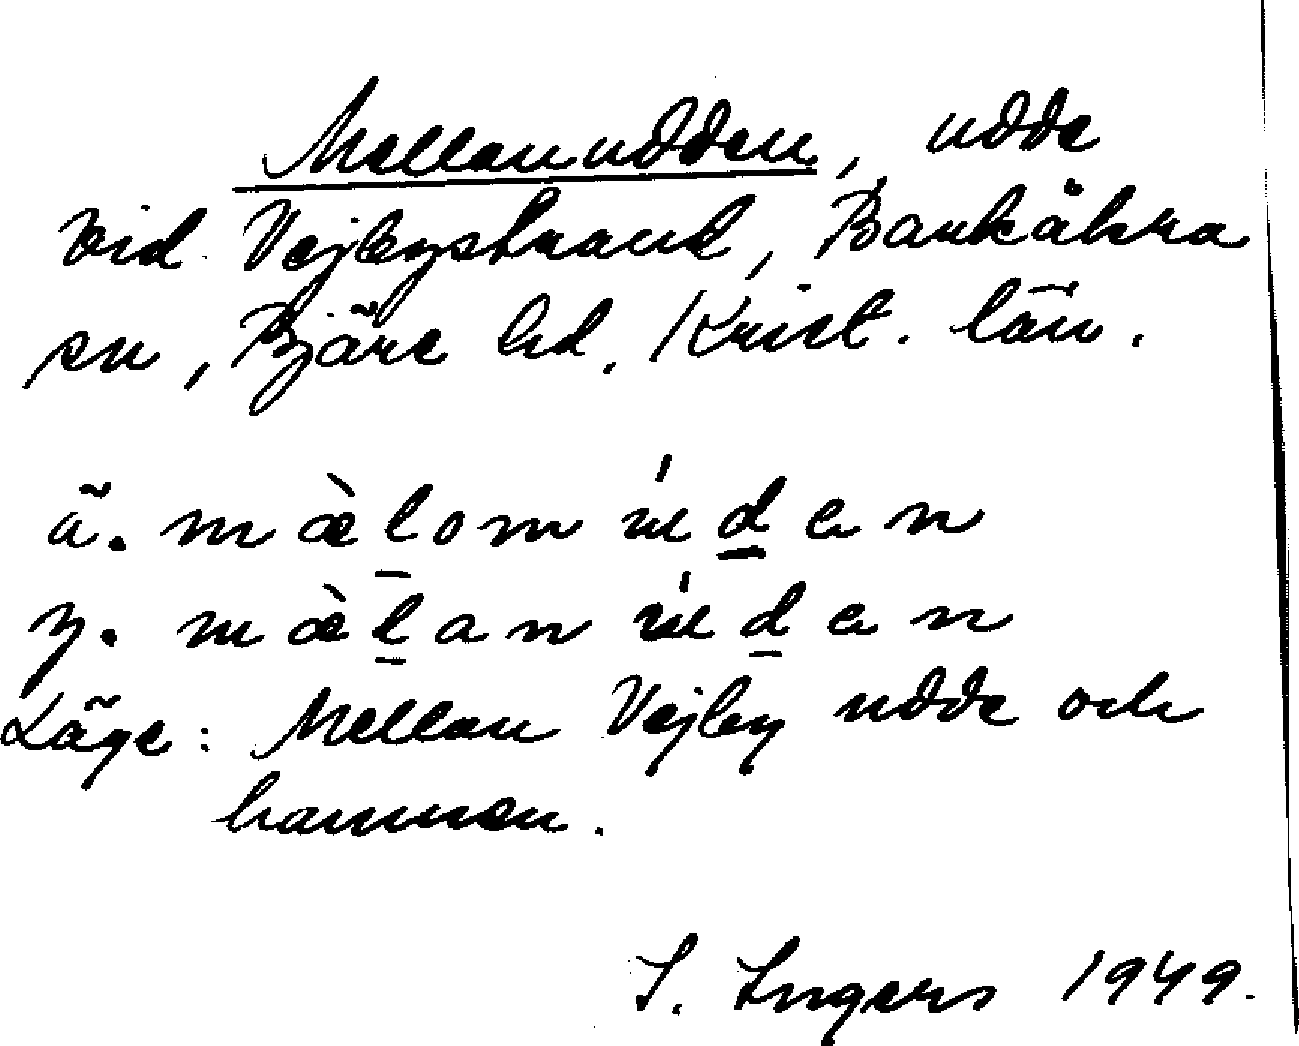 Mellanudden, udde
vid Vejbystrand, Barkåkra
sn, Bjäre hd, Krist. län.
ä. mæ̀l̲om úd̲en
y. mæ̀l̲an úd̲en
Läge: Mellan Vejby udde och
hamnen.
I. Ingers 1949.